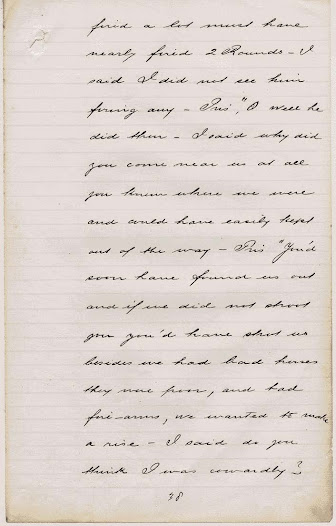 fired a lot must have
nearly fired 2 Rounds - I
said I did not see him
firing any - Pris "O well he
did then - I said why did
you come near us at all
you knew where we were
and could have easily kept
out of the way - Pris "You'd
soon have found us out
and if we did not shoot
you you'd have shot us
besides we had bad horses
they were poor, and bad
fire-arms, we wanted to make
a rise - I said do you
think I was cowardly?
28